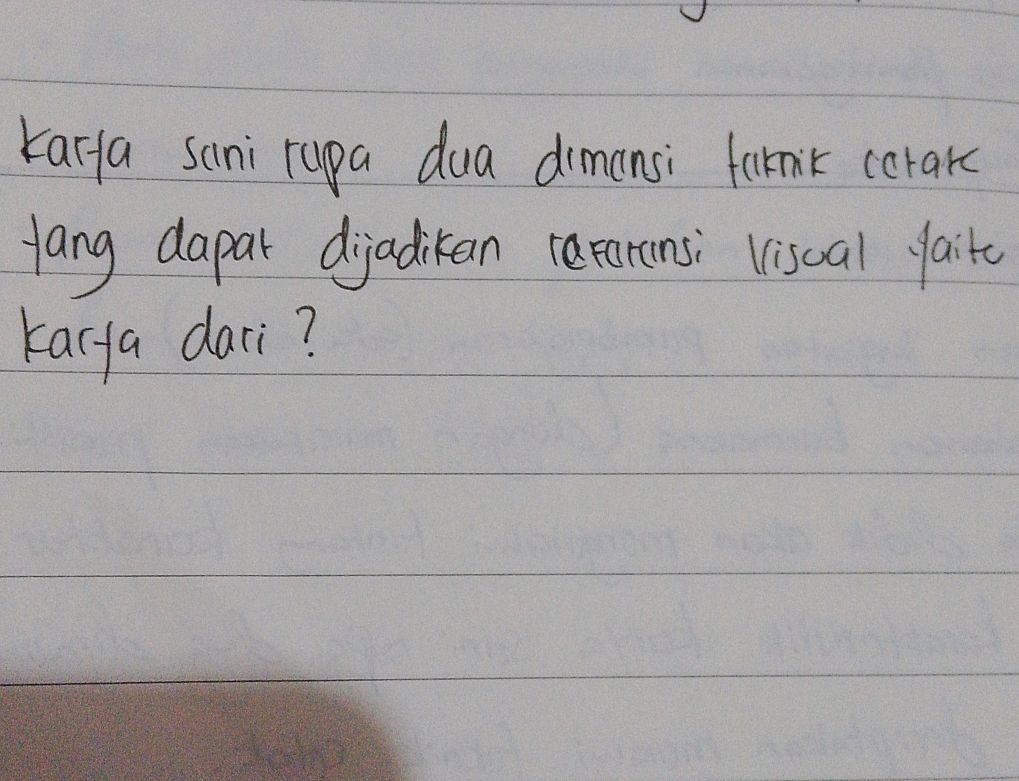 Karya seni rupa dua dimensi teknik cetak
yang dapat dijadikan referensi visual yaitu
karya dari?